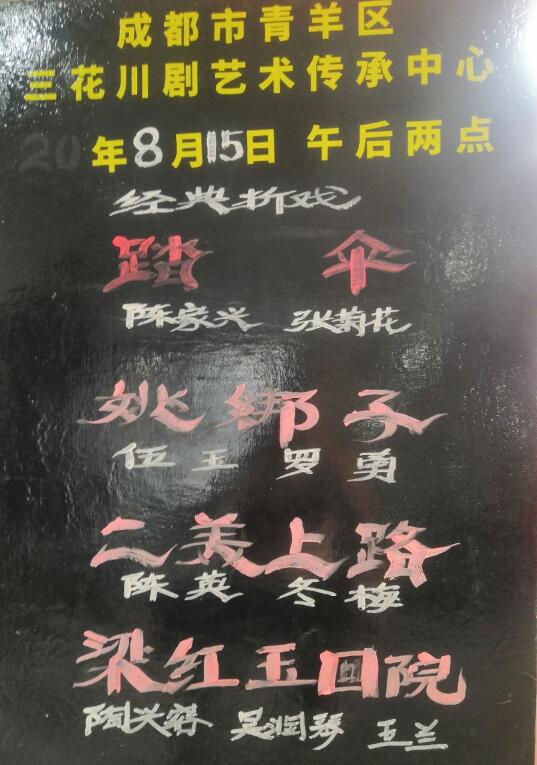 成都市青羊区
三花川剧艺术传承中心
20 年8月15日 午后两点
经典折戏
踏 伞
陈家兴 张菊花
姚绑子
伍玉 罗勇
二美上路
陈英 冬梅
梁红玉回院
陶兴蓉 吴润琴 玉兰